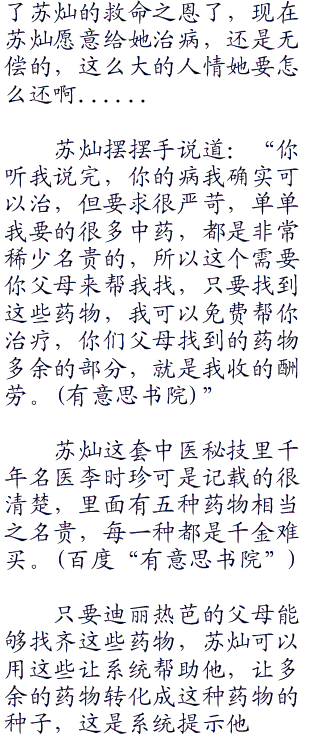 了苏灿的救命之恩了，现在
苏灿愿意给她治病，还是无
偿的，这么大的人情她要怎
么还啊......
苏灿摆摆手说道：“你
听我说完，你的病我确实可
以治，但要求很严苛，单单
我要的很多中药，都是非常
稀少名贵的，所以这个需要
你父母来帮我找，只要找到
这些药物，我可以免费帮你
治疗，你们父母找到的药物
多余的部分，就是我收的酬
劳。(有意思书院)”
苏灿这套中医秘技里千
年名医李时珍可是记载的很
清楚，里面有五种药物相当
之名贵，每一种都是千金难
买。(百度“有意思书院”)
只要迪丽热芭的父母能
够找齐这些药物，苏灿可以
用这些让系统帮助他，让多
余的药物转化成这种药物的
种子，这是系统提示他